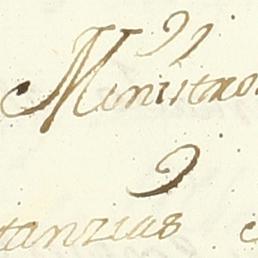 Ministro
tanzias